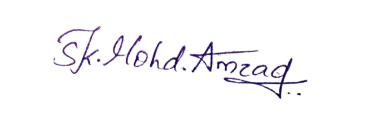 Sk. Mohd. Amzad